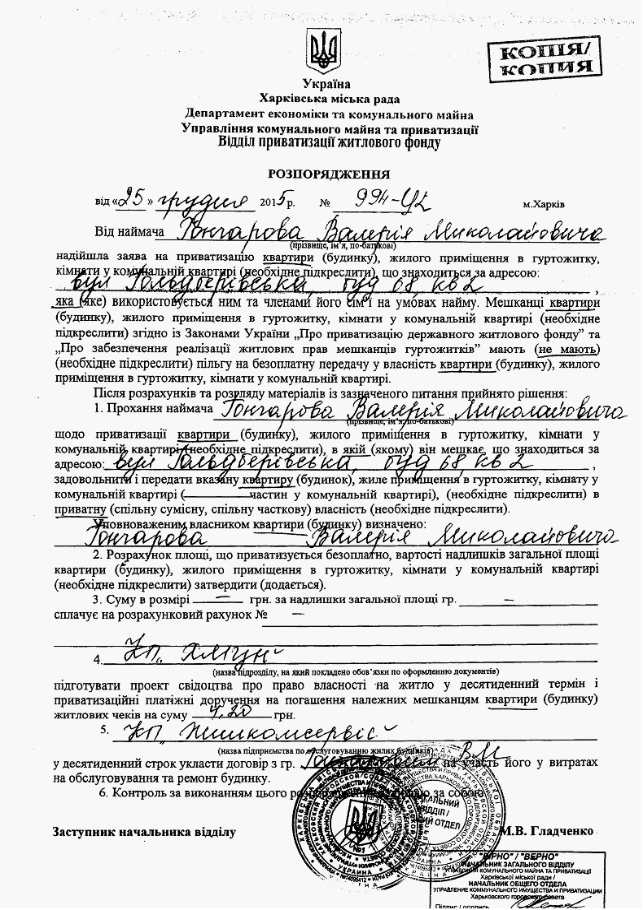 КОПІЯ/
КОПИЯ
Україна
Харківська міська рада
Департамент економіки та комунального майна
Управління комунального майна та приватизації
Відділ приватизації житлового фонду
РОЗПОРЯДЖЕННЯ
від «25» грудня 2015р. № 994-Ц2 м.Харків
Від наймача Гончарова Валерія Миколайовича
(прізвище, ім'я, по-батькові)
надійшла заява на приватизацію квартири (будинку), жилого приміщення в гуртожитку,
кімнати у комунальній квартирі (необхідне підкреслити), що знаходиться за адресою:
вул Гольдберівська, буд 68 кв 2 ,
яка (яке) використовується ним та членами його сім'ї на умовах найму. Мешканці квартири
(будинку), жилого приміщення в гуртожитку, кімнати у комунальній квартирі (необхідне
підкреслити) згідно із Законами України „Про приватизацію державного житлового фонду" та
„Про забезпечення реалізації житлових прав мешканців гуртожитків" мають (не мають)
(необхідне підкреслити) пільгу на безоплатну передачу у власність квартири (будинку), жилого
приміщення в гуртожитку, кімнати у комунальній квартирі.
Після розрахунків та розгляду матеріалів із зазначеного питання прийнято рішення:
1. Прохання наймача Гончарова Валерія Миколайовича
(прізвище, ім'я, по-батькові)
щодо приватизації квартири (будинку), жилого приміщення в гуртожитку, кімнати у
комунальній квартирі (необхідне підкреслити), в якій (якому) він мешкає, що знаходиться за
адресою: вул Гольдберівська, буд 68 кв 2 ,
задовольнити і передати вказану квартиру (будинок), жиле приміщення в гуртожитку, кімнату у
комунальній квартирі (частин у комунальній квартирі), (необхідне підкреслити) в
приватну (спільну сумісну, спільну часткову) власність (необхідне підкреслити).
Уповноваженим власником квартири (будинку) визначено:
Гончарова Валерія Миколайовича
2. Розрахунок площі, що приватизується безоплатно, вартості надлишків загальної площі
квартири (будинку), жилого приміщення в гуртожитку, кімнати у комунальній квартирі
(необхідне підкреслити) затвердити (додається).
3. Суму в розмірі — грн. за надлишки загальної площі гр. —
сплачує на розрахунковий рахунок № —
4. КП „
(назва підрозділу, на який покладено обов'язки по оформленню документів)
підготувати проект свідоцтва про право власності на житло у десятиденний термін і
приватизаційні платіжні доручення на погашення належних мешканцям квартири (будинку)
житлових чеків на суму 4,20 грн.
5. КП „Жилкомсервіс"
(назва підприємства по обслуговуванню жилих будинків)
у десятиденний строк укласти договір з гр. В.М на участь його у витратах
на обслуговування та ремонт будинку.
6. Контроль за виконанням цього розпорядження за собою.
Заступник начальника відділу М.В. Гладченко
"ВІРНО" / "ВЕРНО"
НАЧАЛЬНИК ЗАГАЛЬНОГО ВІДДІЛУ
УПРАВЛІННЯ КОМУНАЛЬНОГО МАЙНА ТА ПРИВАТИЗАЦІЇ
Харківської міської ради /
НАЧАЛЬНИК ОБЩЕГО ОТДЕЛА
УПРАВЛЕНИЕ КОММУНАЛЬНОГО ИМУЩЕСТВА И ПРИВАТИЗАЦИИ
Харьковского городского совета
Підпис / подпись